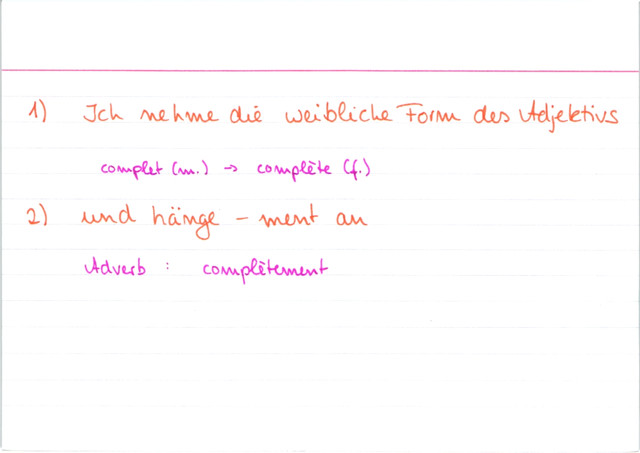 1) Ich nehme die weibliche Form des Adjektivs
complet (m.) → complète (f.)
2) und hänge - ment an
Adverb : complètement